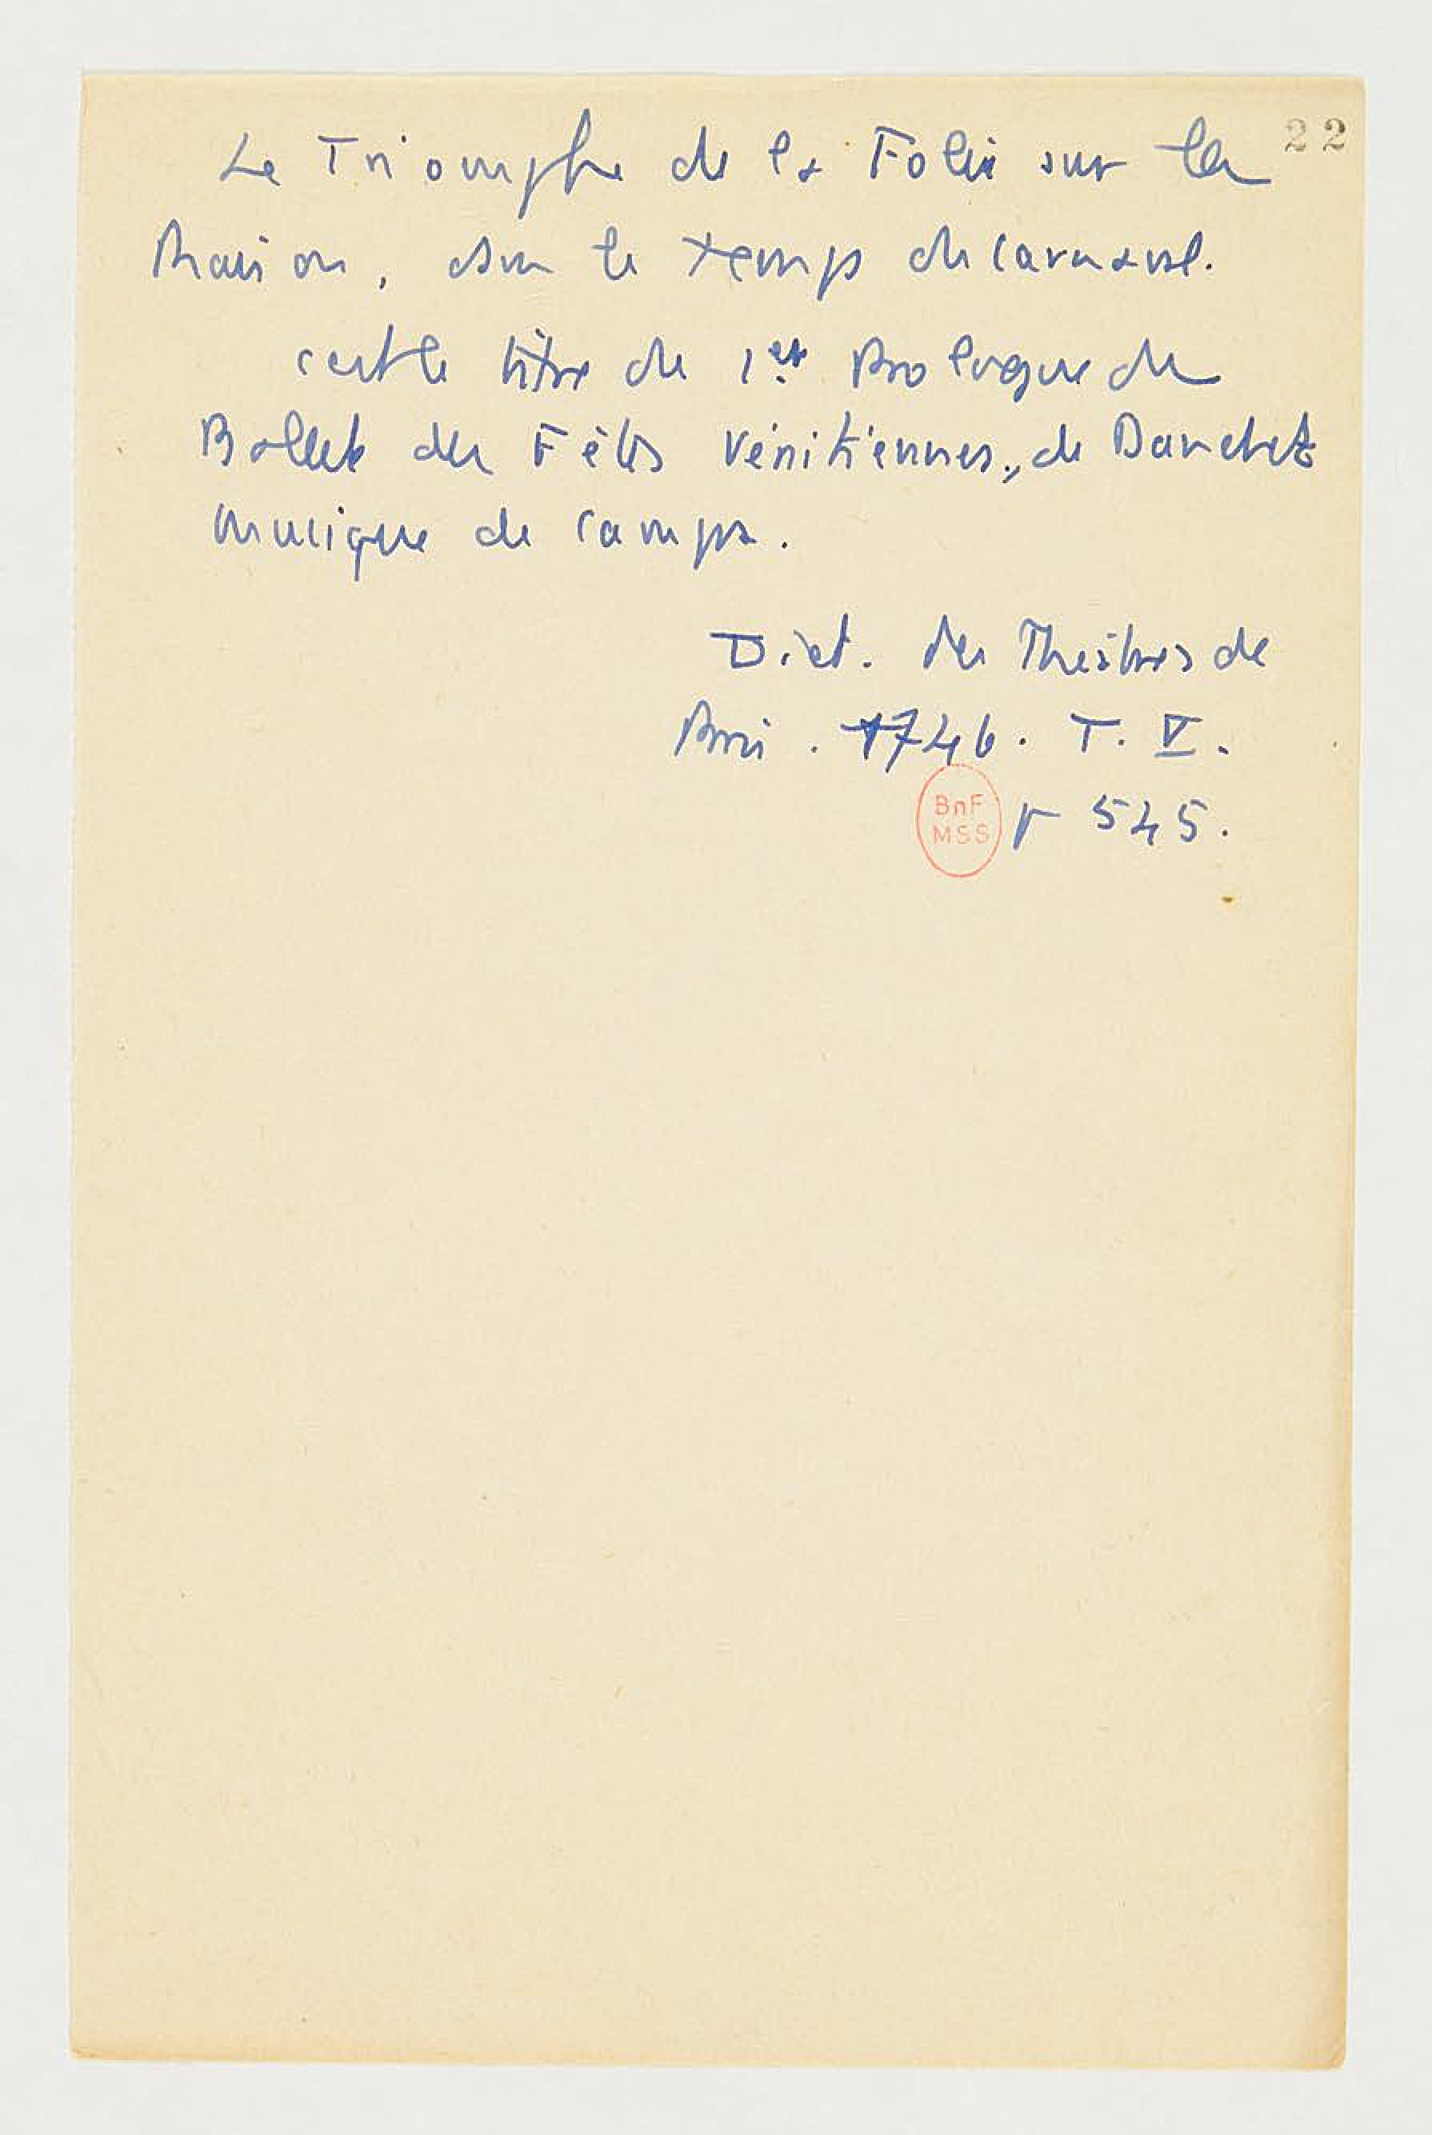 22
Le Triomphe de la Folie sur la
Raison, dans le temps du Carnaval.
c'est le titre du 1er Prologue du
Ballet des Fêtes Vénitiennes, de Danchet
musique de Campra.
Dict. des Théâtres de
Paris. 1746. T. V.
BnF
MSS
p 545.